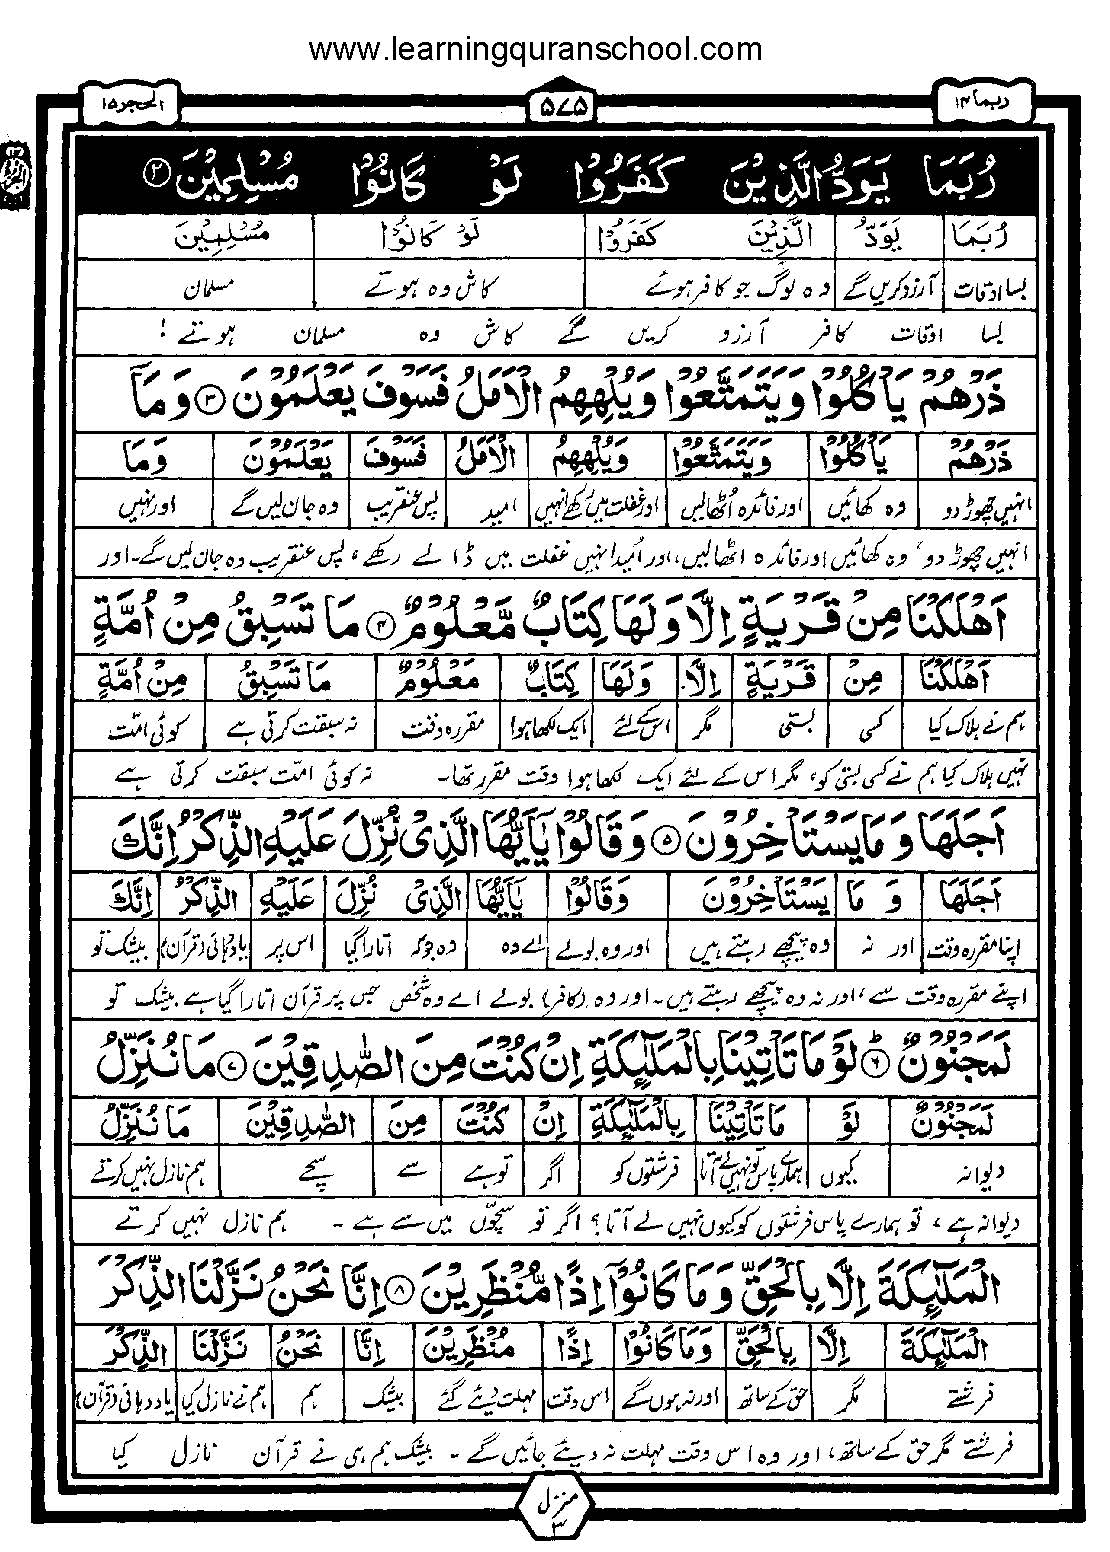 www.learningquranschool.com
ربما ١٤
٥٧٥
الحجر ١٥
رُبَمَا يَوَدُّ الَّذِيْنَ كَفَرُوْا لَوْ كَانُوْا مُسْلِمِيْنَ ②
رُبَمَا يَوَدُّ الَّذِيْنَ كَفَرُوْا لَوْ كَانُوْا مُسْلِمِيْنَ
بسا اوقات آرزو کریں گے وہ لوگ جو کافر ہوئے کاش وہ ہوتے مسلمان
بسا اوقات کافر آرزو کریں گے کاش وہ مسلمان ہوتے !
ذَرْهُمْ يَاْكُلُوْا وَيَتَمَتَّعُوْا وَيُلْهِهِمُ الْاَمَلُ فَسَوْفَ يَعْلَمُوْنَ ③ وَمَآ
ذَرْهُمْ يَاْكُلُوْا وَيَتَمَتَّعُوْا وَيُلْهِهِمُ الْاَمَلُ فَسَوْفَ يَعْلَمُوْنَ وَمَا
انہیں چھوڑ دو وہ کھائیں اور فائدہ اُٹھالیں اور غفلت میں رکھے انہیں امید پس عنقریب وہ جان لیں گے اور نہیں
انہیں چھوڑ دو، وہ کھائیں اور فائدہ اٹھالیں، اور اُمید انہیں غفلت میں ڈالے رکھے، پس عنقریب وہ جان لیں گے۔ اور
اَهْلَكْنَا مِنْ قَرْيَةٍ اِلَّا وَلَهَا كِتَابٌ مَّعْلُوْمٌ ④ مَا تَسْبِقُ مِنْ اُمَّةٍ
اَهْلَكْنَا مِنْ قَرْيَةٍ اِلَّا وَلَهَا كِتَابٌ مَعْلُوْمٌ مَا تَسْبِقُ مِنْ اُمَّةٍ
ہم نے ہلاک کیا کسی بستی مگر اس کے لئے ایک لکھا ہوا مقررہ وقت نہ سبقت کرتی ہے کوئی امت
نہیں ہلاک کیا ہم نے کسی بستی کو، مگر اس کے لئے ایک لکھا ہوا وقت مقرر تھا۔ نہ کوئی امّت سبقت کرتی ہے
اَجَلَهَا وَمَا يَسْتَاْخِرُوْنَ ⑤ وَقَالُوْا يٰٓاَيُّهَا الَّذِيْ نُزِّلَ عَلَيْهِ الذِّكْرُ اِنَّكَ
اَجَلَهَا وَ مَا يَسْتَاْخِرُوْنَ وَقَالُوْا يٰٓاَيُّهَا الَّذِيْ نُزِّلَ عَلَيْهِ الذِّكْرُ اِنَّكَ
اپنا مقررہ وقت اور نہ وہ پیچھے رہتے ہیں اور وہ بولے اے وہ وہ جو کہ اتارا گیا اس پر یاد دہانی (قرآن) بیشک تو
اپنے مقررہ وقت سے، اور نہ وہ پیچھے رہتے ہیں۔ اور وہ (کافر) بولے اے وہ شخص جس پر قرآن اتارا گیا ہے بیشک تو
لَمَجْنُوْنٌ ⑥ لَوْ مَا تَاْتِيْنَا بِالْمَلٰٓئِكَةِ اِنْ كُنْتَ مِنَ الصّٰدِقِيْنَ ⑦ مَا نُنَزِّلُ
لَمَجْنُوْنٌ لَوْ مَا تَاْتِيْنَا بِالْمَلٰٓئِكَةِ اِنْ كُنْتَ مِنَ الصّٰدِقِيْنَ مَا نُنَزِّلُ
دیوانہ کیوں ہمارے پاس تو نہیں لے آتا فرشتوں کو اگر تو ہے سے سچے ہم نازل نہیں کرتے
دیوانہ ہے، تو ہمارے پاس فرشتوں کو کیوں نہیں لے آتا؟ اگر تو سچّوں میں سے ہے۔ ہم نازل نہیں کرتے
الْمَلٰٓئِكَةَ اِلَّا بِالْحَقِّ وَمَا كَانُوْٓا اِذًا مُّنْظَرِيْنَ ⑧ اِنَّا نَحْنُ نَزَّلْنَا الذِّكْرَ
الْمَلٰٓئِكَةَ اِلَّا بِالْحَقِّ وَمَا كَانُوْا اِذًا مُنْظَرِيْنَ اِنَّا نَحْنُ نَزَّلْنَا الذِّكْرَ
فرشتے مگر حق کے ساتھ اور نہ ہوں گے اس وقت مہلت دیئے گئے بیشک ہم ہم نے نازل کیا یاد دہانی (قرآن)
فرشتے مگر حق کے ساتھ، اور وہ اس وقت مہلت نہ دیئے جائیں گے۔ بیشک ہم ہی نے قرآن نازل کیا
منزل ٣